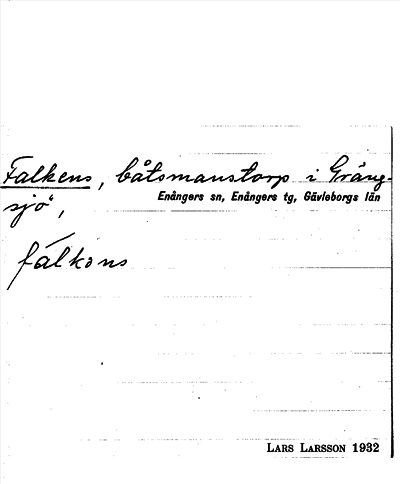 Falkens, båtsmanstorp i Gräng-
Enångers sn, Enångers tg, Gävleborgs län
sjö",
fálkəns
LARS LARSSON 1932